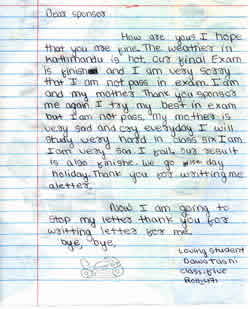 Dear sponsor
How are yous I hope
that you are fine. The weather in
kathmandu is hot. our final Exam
is finish and I am very sorry
that I am not pass in exam. I am
and my mother Thank you sponsor
me again. I try my best in exam
but I am not pass, my mother is
very sad and cry everyday I will
study very hard in class six I am
I am very sad. I fail, our result
is also finishe. we go day
holiday. Thank you for writting me
a letter.
Now I am going to
stop my letter thank you for
writting letter for me.
bye, bye,
Loving student
Dawa Tashi
class: five